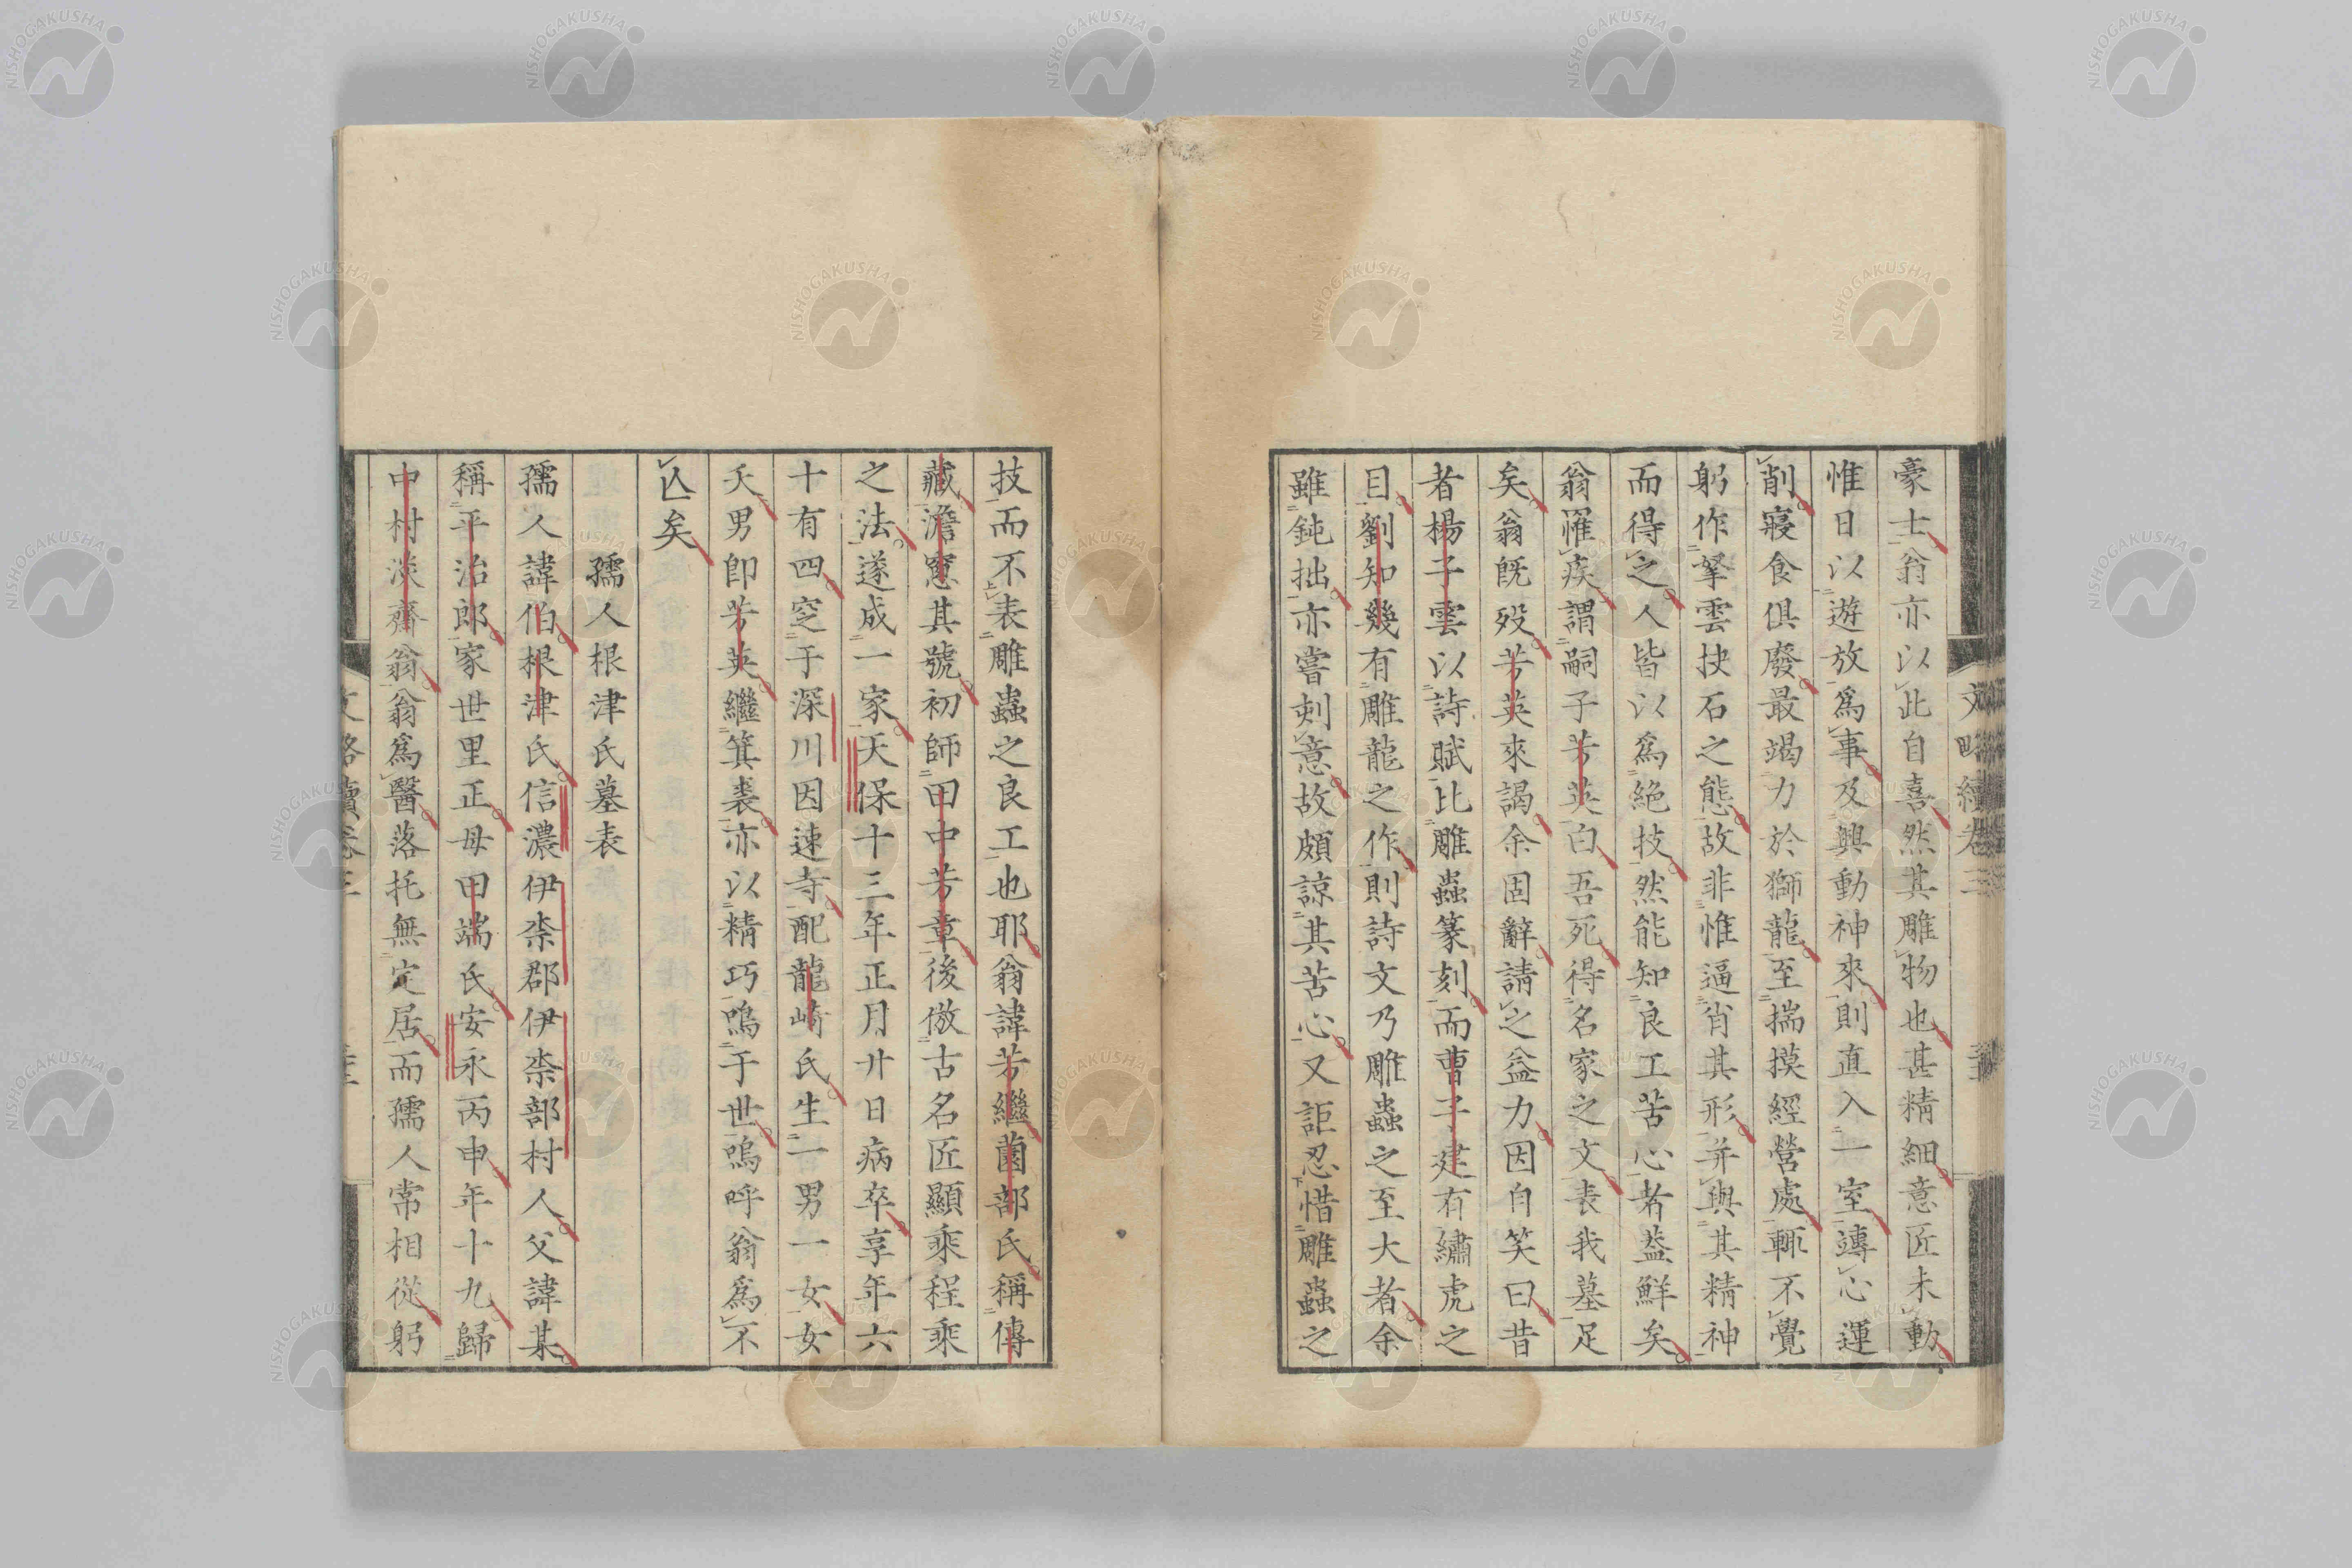 豪士翁亦以此自喜然其雕物也甚精細意匠未動
惟日以遊放爲事及興動神來則直入一室專心運
削寢食俱廢最竭力於獅龍至揣摸經營處輒不覺
躬作拏雲抉石之態故非惟逼肖其形并與其精神
而得之人皆以爲絶技然能知良工苦心者葢鮮矣
翁罹疾謂嗣子芳英曰吾死得名家之文表我墓足
矣翁旣歿芳英來謁余固辭請之益力因自笑曰昔
者楊子雲以詩賦比雕蟲篆刻而曹子建有繡虎之
目劉知幾有雕龍之作則詩文乃雕蟲之至大者余
雖鈍拙亦嘗刻意故頗諒其苦心又詎忍惜雕蟲之
技而不表雕蟲之良工也耶翁諱芳繼薗部氏稱傳
藏澹窓其號初師田中芳章後倣古名匠顯乘程乘
之法遂成一家天保十三年正月廿日病卒享年六
十有四窆于深川因速寺配龍崎氏生一男一女女
夭男卽芳英繼箕裘亦以精巧鳴于世嗚呼翁爲不
亾矣
孺人根津氏墓表
孺人諱伯根津氏信濃伊柰郡伊柰部村人父諱某
稱平治郎家世里正母田端氏安永丙申年十九歸
中村淡齋翁翁爲醫落托無定居而孺人常相從躬
文略續卷三
NISHOGAKUSHA